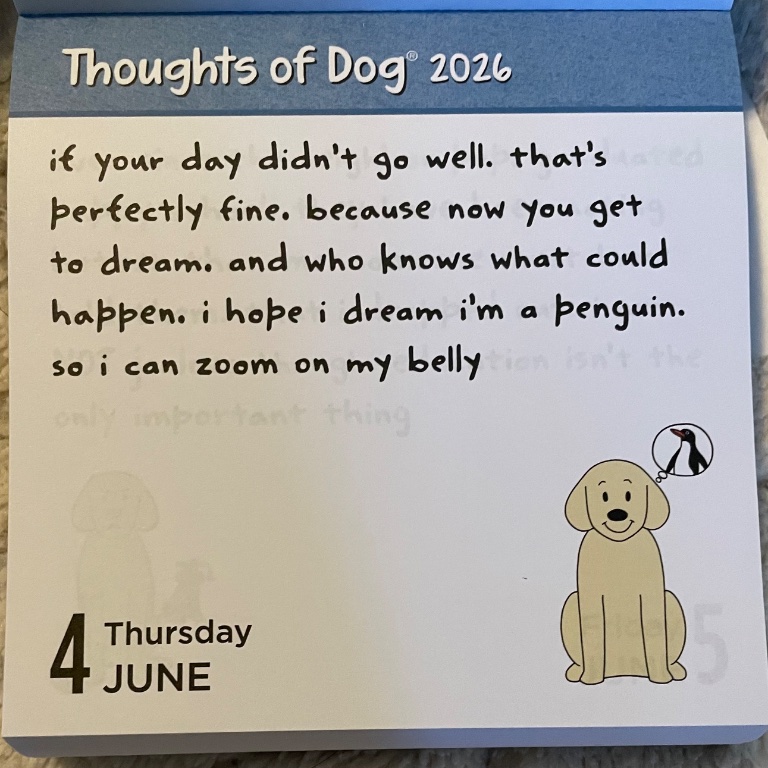 Thoughts of Dog® 2026
if your day didn't go well. that's
perfectly fine. because now you get
to dream. and who knows what could
happen. i hope i dream i'm a penguin.
so i can zoom on my belly
tion isn't the
only important thing
4 Thursday
JUNE
Friday
JUNE 5